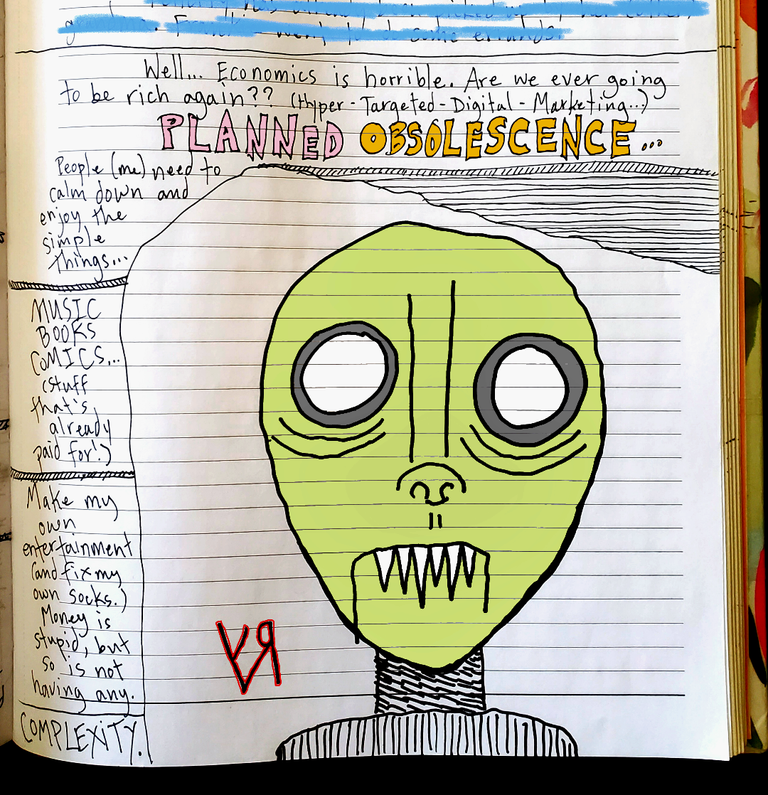 Well... Economics is horrible. Are we ever going
to be rich again?? (Hyper-Targeted-Digital-Marketing...)
PLANNED OBSOLESCENCE...
People (me) need to
calm down and
enjoy the
simple
things...
MUSIC
BOOKS
COMICS...
(stuff
that's
already
paid for!)
Make my
own
entertainment
(and fix my
own socks.)
Money is
stupid, but
so is not
having any.
COMPLEXITY.